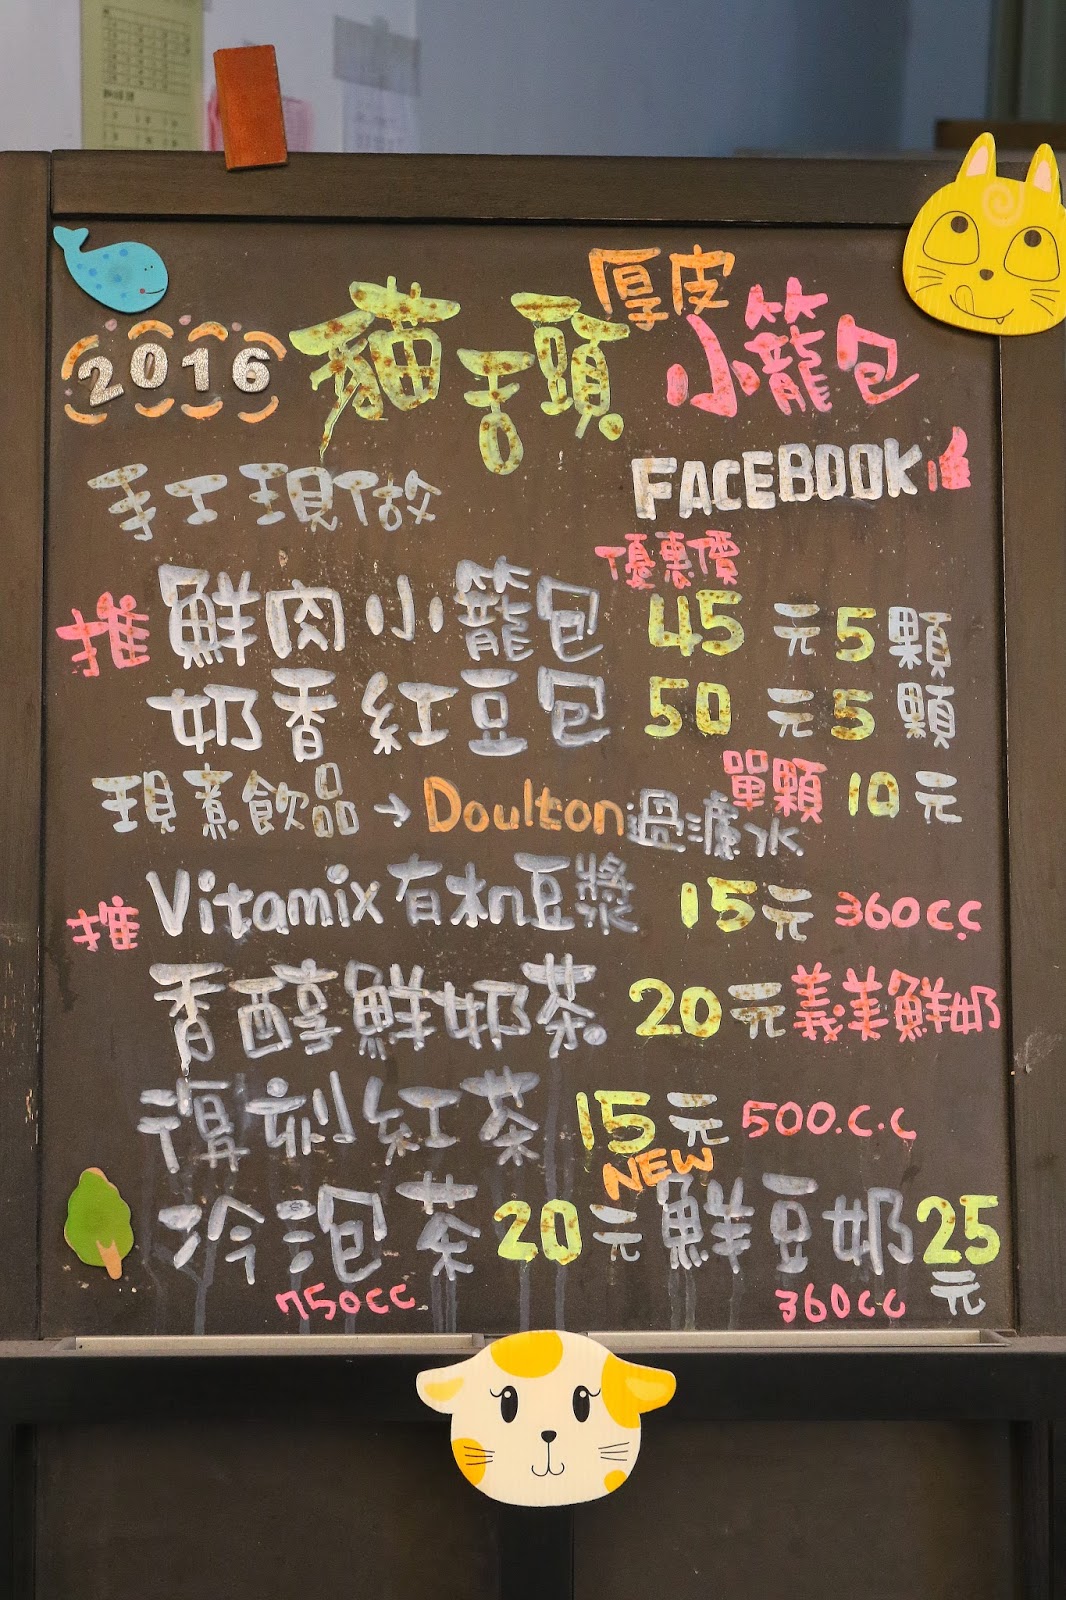 厚皮
2016 貓舌頭 小籠包
手工現做 FACEBOOK
優惠價
推 鮮肉小籠包 45元5顆
奶香紅豆包 50元5顆
單顆10元
現煮飲品→Doulton過濾水
推 Vitamix有机豆漿 15元 360cc
香醇鮮奶茶 20元 義美鮮奶
復刻紅茶 15元 500.c.c
NEW
冷泡茶 20元 鮮豆奶 25元
750cc 360cc